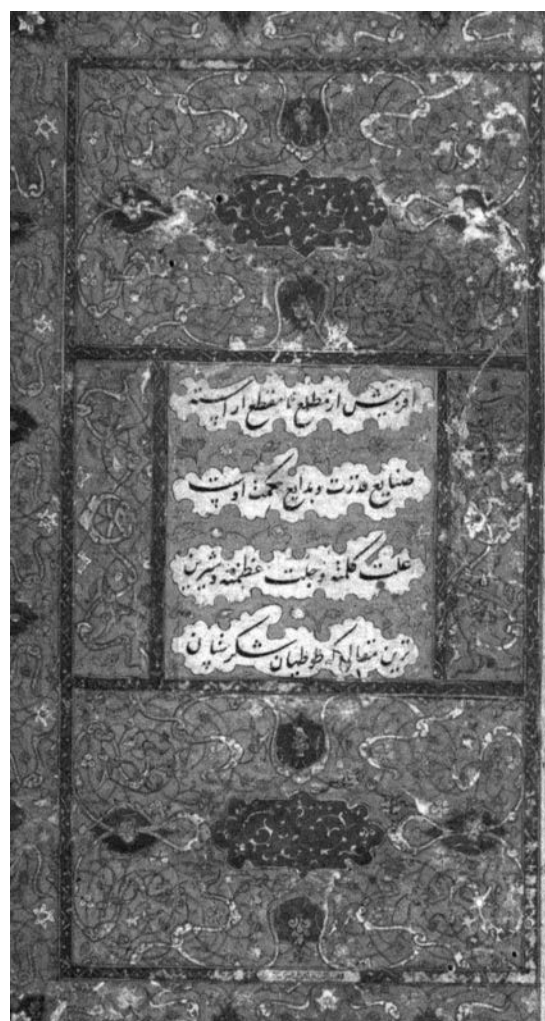 آفرینش از مطلع تا مقطع آراسته
صنایع قدرت و بدایع حکمت اوست
علت کلمته و جلت عظمته و شیرین
ترین مقالی که طوطیان شکرستان